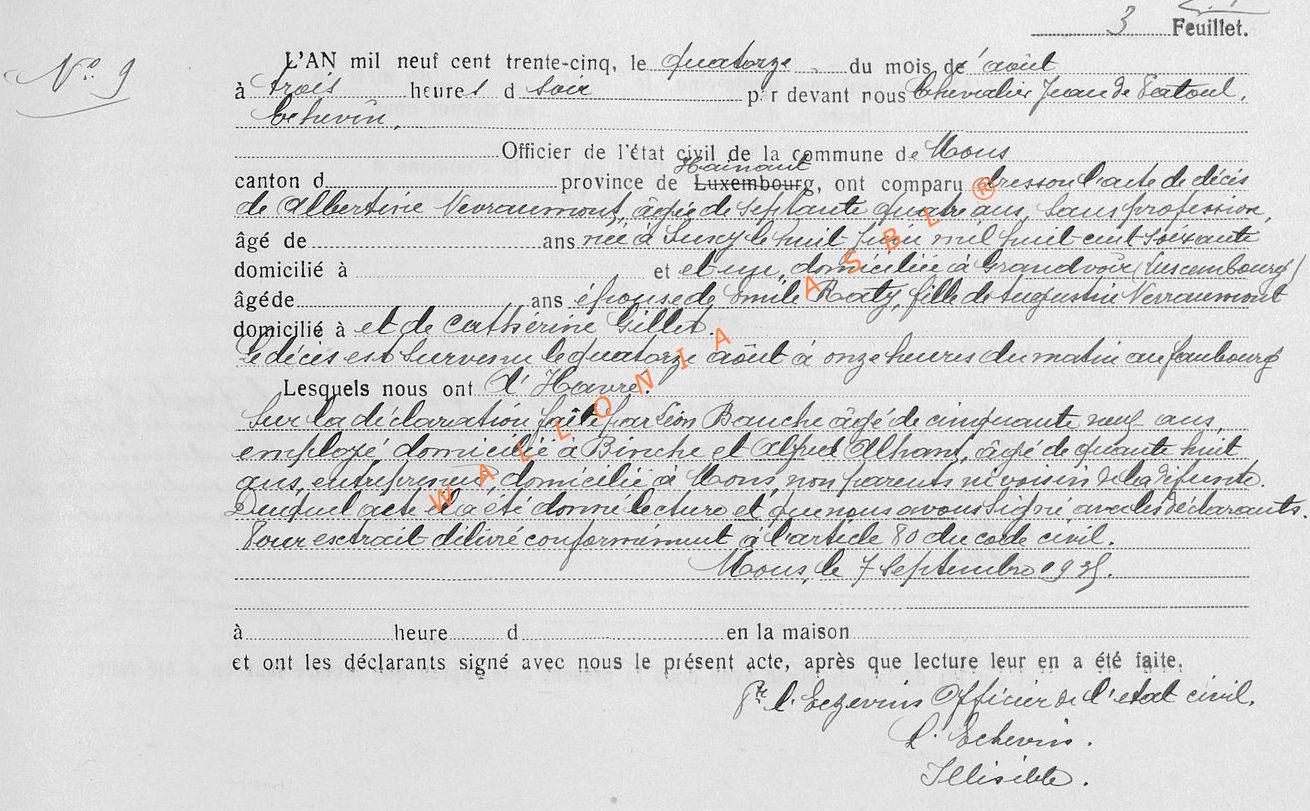 3 Feuillet.
N° 9
L'AN mil neuf cent trente-cinq, le quatorze du mois de août
à trois heures d soir par devant nous Chevalier Jean de Patoul,
Echevin,
Officier de l'état civil de la commune de Mons
Hainaut
canton d province de Luxembourg, ont comparu dressons l'acte de décès
de Albertine Nevraumont, âgée de septante quatre ans, sans profession,
âgé de ans née à Suxy le huit juin mil huit cent soixante
domicilié à et un, domiciliée à Grandvoir (Luxembourg)
âgé de ans épouse de Emile Raty, fille de Augustin Nevraumont
domicilié à et de Cathérine Gillet.
Le décès est survenu le quatorze août à onze heures du matin au faubourg
Lesquels nous ont d'Havré.
Sur la déclaration faite par Léon Bauche âgé de cinquante neuf ans,
employé domicilié à Binche et Alfred âgé de quante huit
ans, entrepreneur, domicilié à Mons, non parents ni voisin de la défunte.
Duquel acte il a été donné lecture et que nous avons signé avec les déclarants.
Pour extrait délivré conformément à l'article 80 du code civil.
Mons, le 7 Septembre 1935.
à heure d en la maison
et ont les déclarants signé avec nous le présent acte, après que lecture leur en a été faite.
Pr l'Echevins Officier de l'état civil.
L'Echevin.
Illisible.
WALLONIA ASBL ®